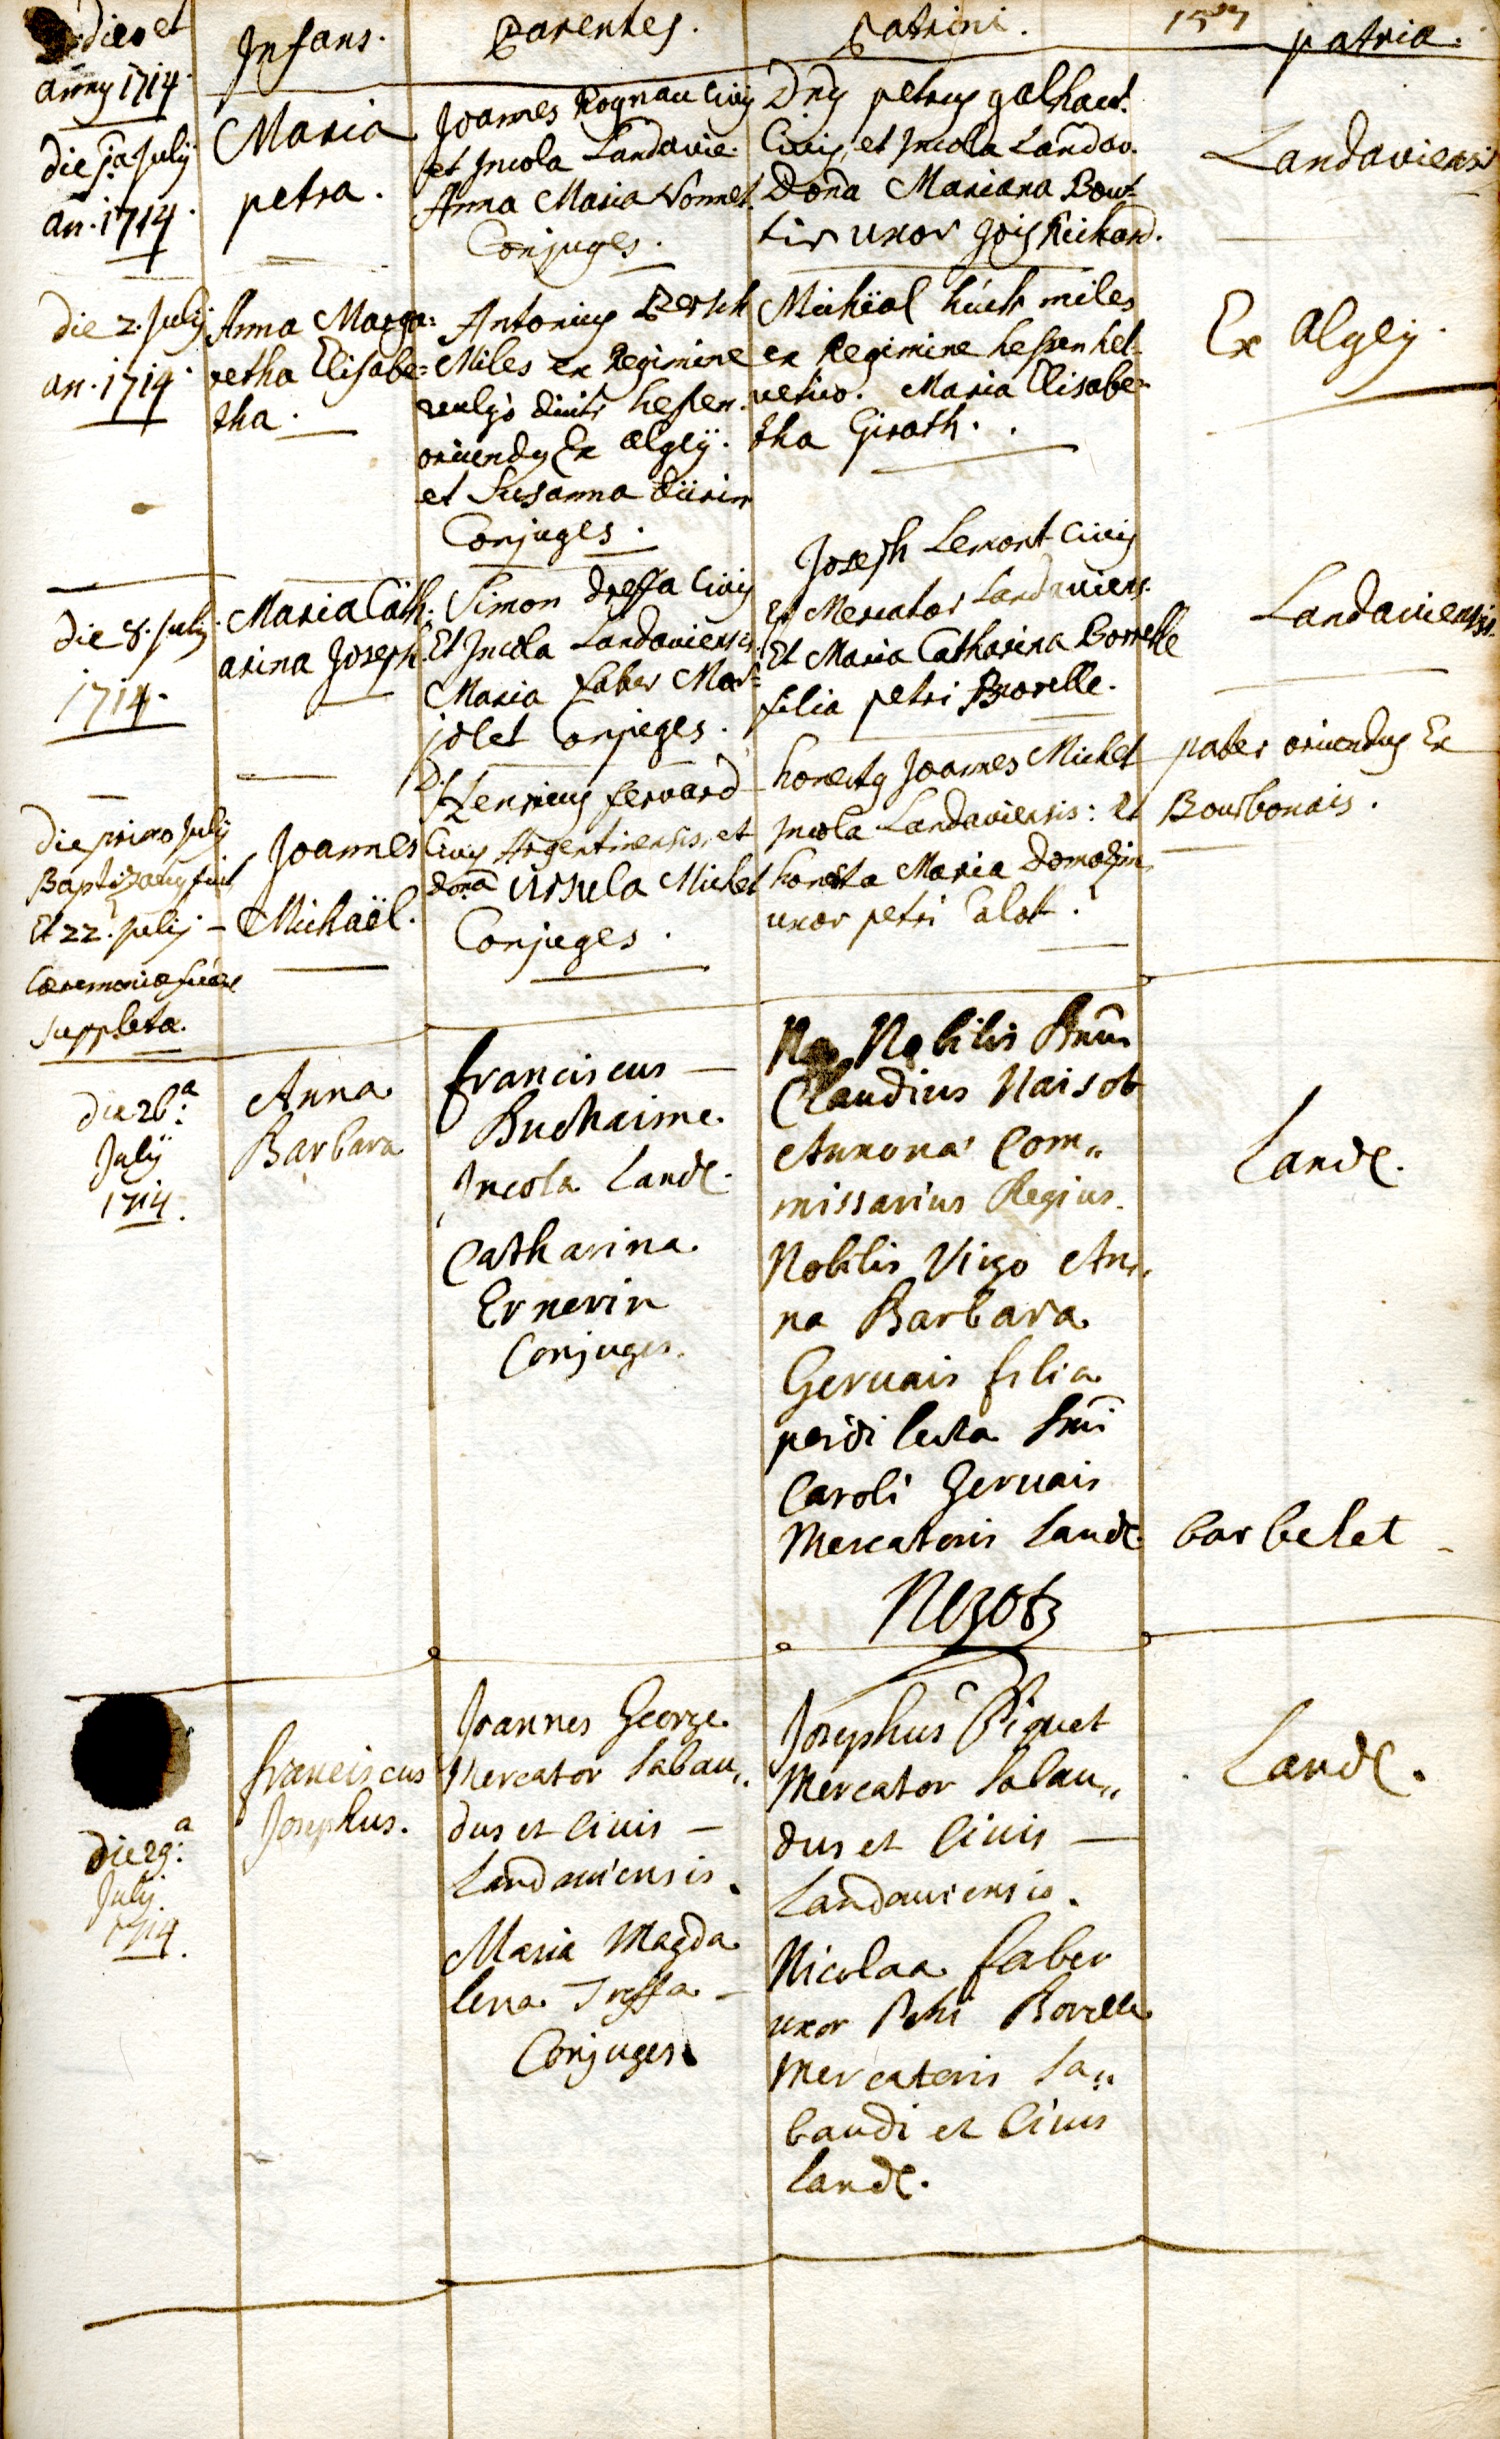 dies et
anny 1714.
Infans.
Parentes.
Patrini.
patria.
die 1a July
an. 1714.
Maria
petra.
Joannes Rognau Civis
et Incola Landavie.
Anna Maria Vonnet.
Conjuges.
Dnus petrus galhaut.
Civis, et Incola Landav.
Dona Mariana Bou-
tir uxor Jois Richard.
Landaviensis
die 2. July
an. 1714.
Anna Marga=
retha Elisabe=
tha.
Antonius Bersch
Miles ex Regimine
vulgo dicti hessen.
oriundus Ex algeÿ.
et Susanna düirin
Conjuges.
Michäal hück miles
ex Regimine hessen hel-
vetico. Maria Elisabe=
tha Girath.
Ex algey.
die 8. July
1714.
Maria Cath.
arina Joseph.
Simon dreffa Civis
Et Incola Landaviensis.
Maria faber Mar=
jolet Conjuges.
Joseph Lemont Civis
Et Mercator Landaviens.
Et Maria Catharina Borrelle
filia petri Borelle.
Landaviensis.
die primo July
Baptizatus fuit
Et 22. July -
Cæremoniæ fuêre
suppletæ.
Joannes
Michaël.
Ds Henricus ferrard
Civis Argentinensis, et
dona Ursula Michel
Conjuges.
honestus Joannes Michel
Incola Landaviensis: Et
honesta Maria Domazin
uxor petri Calot.
pater oriundus Ex
Bourbonais.
die 26:a
July
1714.
Anna
Barbara
franciscus —
Buchaime.
Incola Land.
Catharina
Ernerin
Conjuges.
Nobilis Dnus
Claudius Naisot
Annona Com„
missarius Regius.
Nobilis Virgo An„
na Barbara
Gervais filia
perdilecta Dni
Caroli Gervais
Mercatoris Land.
Nezotz
Land.
barbelet
die 29:a
July.
1714.
franciscus
Josephus.
Joannes George
Mercator Sabau„
dus et Civis —
Landaviensis.
Maria Magda
lena Treffa —
Conjuges
Josephus Piquet
Mercator Sabau„
dus et Civis —
Landaviensis.
Nicolaa faber
uxor Petri Borelle
Mercatoris Sa„
baudi et Civis
Land.
Land.